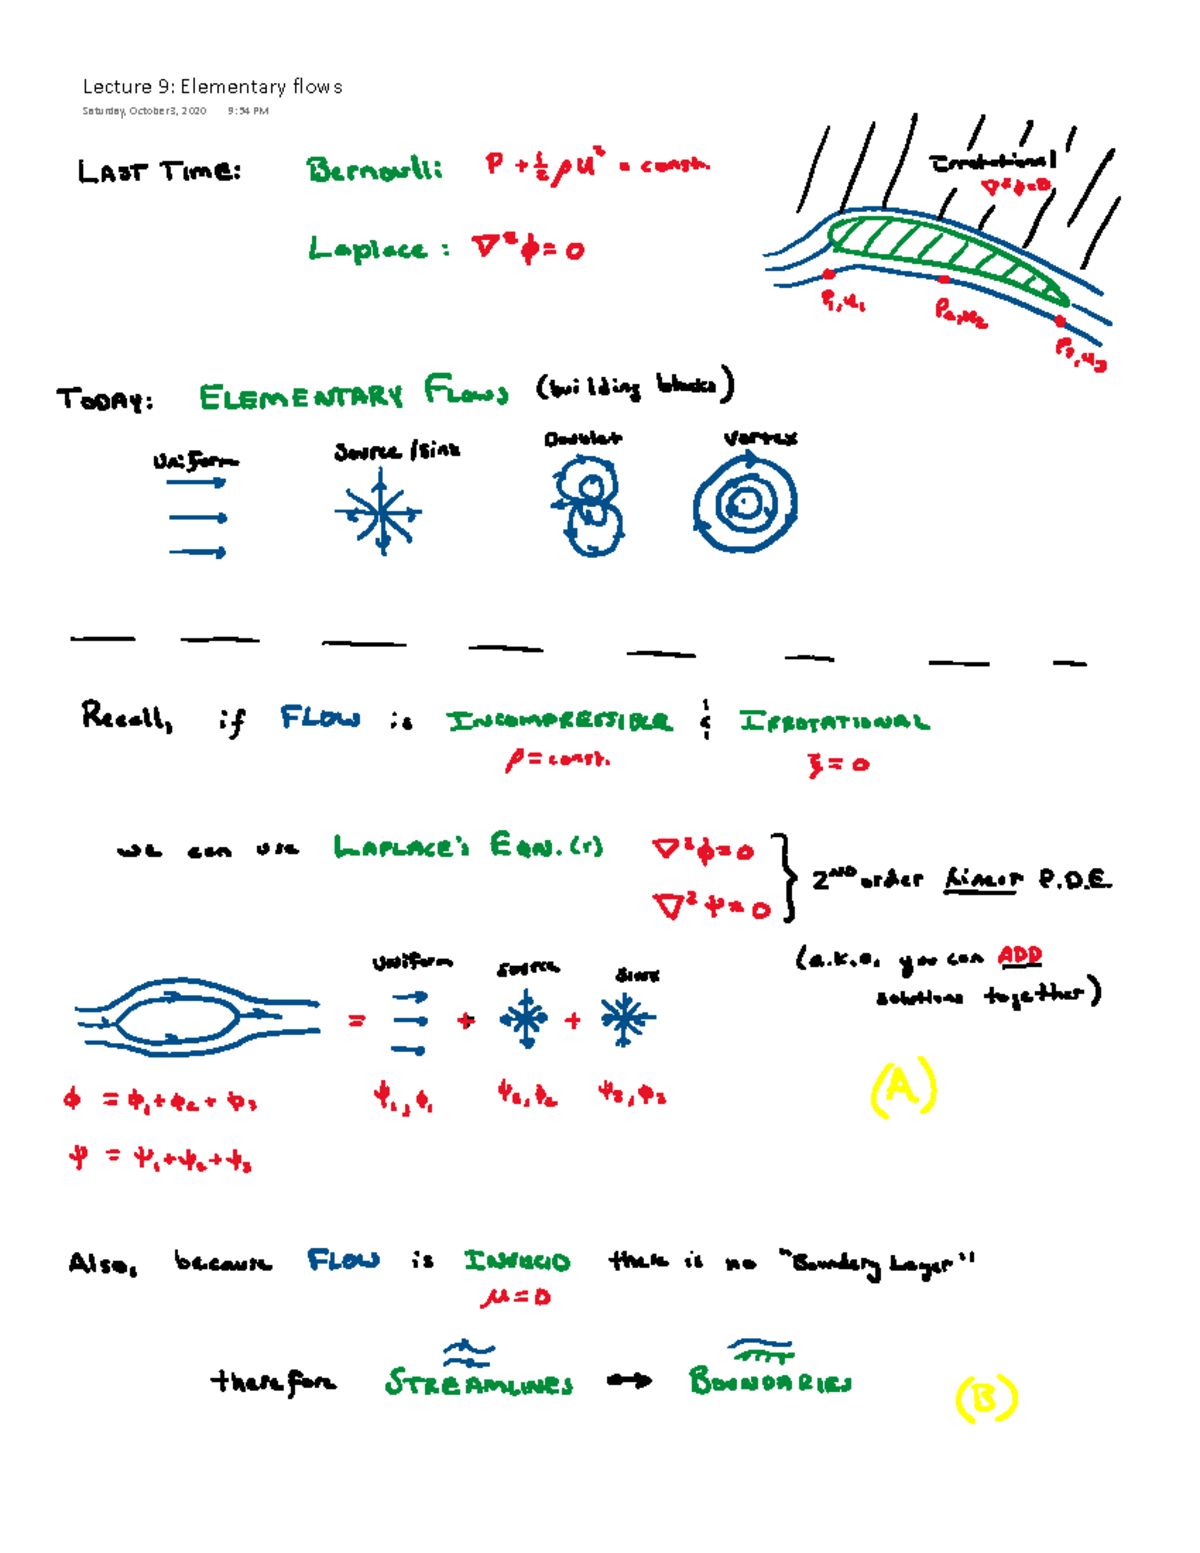 Lecture 9: Elementary flows
Saturday, October 3, 2020 9:54 PM
LAST TIME: Bernoulli: P + ½ρu² = const.
Irrotational
∇²φ=0
Laplace: ∇²φ=0
P₁,u₁ P₂,u₂ P₃,u₃
TODAY: ELEMENTARY FLOWS (building blocks)
Uniform Source/Sink Doublet Vortex
Recall, if FLOW is INCOMPRESSIBLE & IRROTATIONAL
ρ=const. ξ=0
we can use LAPLACE'S EQN.(s) ∇²φ=0
2ND order Linear P.D.E.
∇²ψ=0
(a.k.a. you can ADD
solutions together)
Uniform Source Sink
= + +
(A)
φ = φ₁+φ₂+φ₃ ψ₁,φ₁ ψ₂,φ₂ ψ₃,φ₃
ψ = ψ₁+ψ₂+ψ₃
Also, because FLOW is INVISCID there is no "Boundary Layer"
μ=0
therefore STREAMLINES → BOUNDARIES
(B)